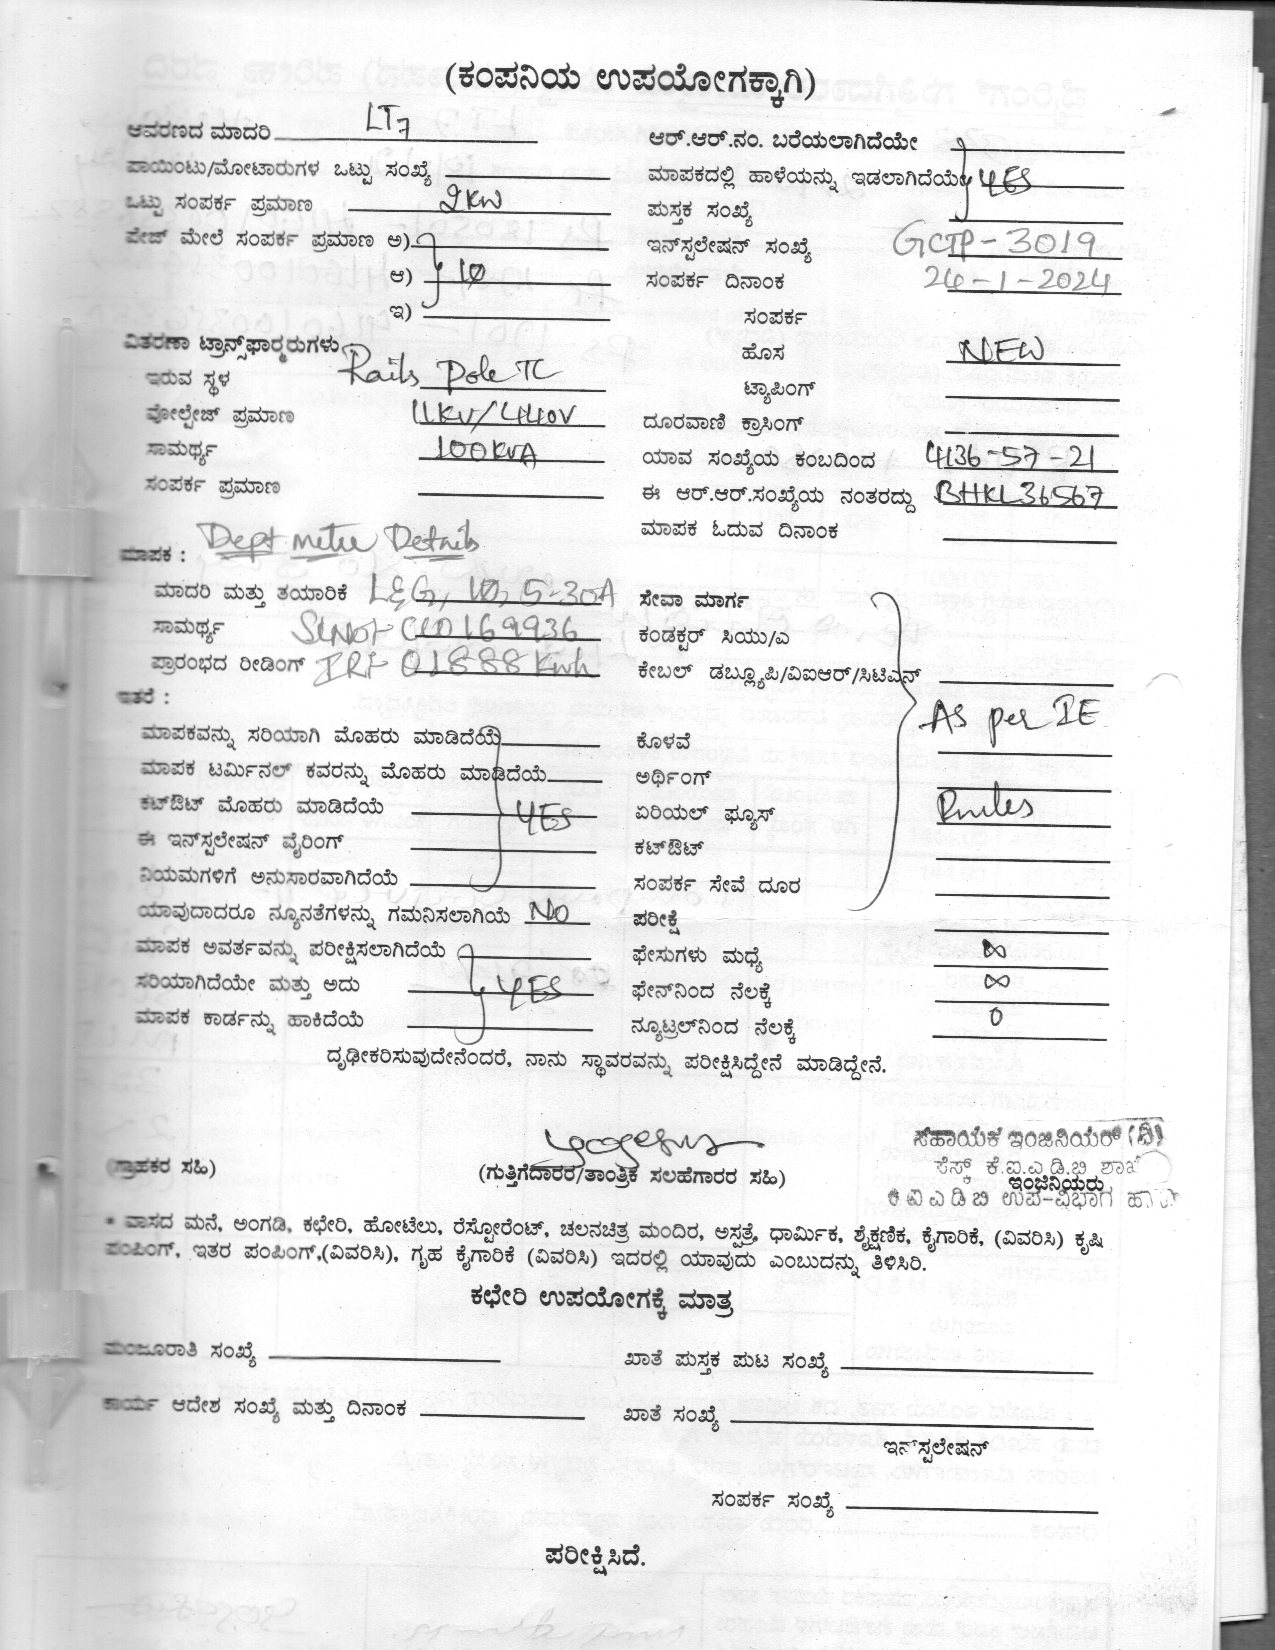 (ಕಂಪನಿಯ ಉಪಯೋಗಕ್ಕಾಗಿ)
ಆವರಣದ ಮಾದರಿ LT7
ಪಾಯಿಂಟು/ಮೋಟಾರುಗಳ ಒಟ್ಟು ಸಂಖ್ಯೆ
ಒಟ್ಟು ಸಂಪರ್ಕ ಪ್ರಮಾಣ 2KW
ಪೇಜ್ ಮೇಲೆ ಸಂಪರ್ಕ ಪ್ರಮಾಣ ಅ)
ಆ) 1Ø
ಇ)
ವಿತರಣಾ ಟ್ರಾನ್ಸ್‌ಫಾರ್ಮರುಗಳು
ಇರುವ ಸ್ಥಳ Raits Pole TC
ವೋಲ್ಟೇಜ್ ಪ್ರಮಾಣ 11KV/440V
ಸಾಮರ್ಥ್ಯ 100KVA
ಸಂಪರ್ಕ ಪ್ರಮಾಣ
ಆರ್.ಆರ್.ನಂ. ಬರೆಯಲಾಗಿದೆಯೇ
ಮಾಪಕದಲ್ಲಿ ಹಾಳೆಯನ್ನು ಇಡಲಾಗಿದೆಯೇ YES
ಪುಸ್ತಕ ಸಂಖ್ಯೆ
ಇನ್‌ಸ್ಟಲೇಷನ್ ಸಂಖ್ಯೆ GCTP-3019
ಸಂಪರ್ಕ ದಿನಾಂಕ 26-1-2024
ಸಂಪರ್ಕ
ಹೊಸ NEW
ಟ್ಯಾಪಿಂಗ್
ದೂರವಾಣಿ ಕ್ರಾಸಿಂಗ್
ಯಾವ ಸಂಖ್ಯೆಯ ಕಂಬದಿಂದ 4136-57-21
ಈ ಆರ್.ಆರ್.ಸಂಖ್ಯೆಯ ನಂತರದ್ದು BHKL36567
ಮಾಪಕ ಓದುವ ದಿನಾಂಕ
Dept metre Details
ಮಾಪಕ :
ಮಾದರಿ ಮತ್ತು ತಯಾರಿಕೆ L&G, 1Ø, 5-30A
ಸಾಮರ್ಥ್ಯ SLNO:- CU0169936
ಪ್ರಾರಂಭದ ರೀಡಿಂಗ್ IR:- 01888 Kwh
ಇತರೆ :
ಮಾಪಕವನ್ನು ಸರಿಯಾಗಿ ಮೊಹರು ಮಾಡಿದೆಯೆ
ಮಾಪಕ ಟರ್ಮಿನಲ್ ಕವರನ್ನು ಮೊಹರು ಮಾಡಿದೆಯೆ
ಕಟ್‌ಔಟ್ ಮೊಹರು ಮಾಡಿದೆಯೆ YES
ಈ ಇನ್‌ಸ್ಪಲೇಷನ್ ವೈರಿಂಗ್
ನಿಯಮಗಳಿಗೆ ಅನುಸಾರವಾಗಿದೆಯೆ
ಯಾವುದಾದರೂ ನ್ಯೂನತೆಗಳನ್ನು ಗಮನಿಸಲಾಗಿಯೆ NO
ಮಾಪಕ ಅವರ್ತವನ್ನು ಪರೀಕ್ಷಿಸಲಾಗಿದೆಯೆ
ಸರಿಯಾಗಿದೆಯೇ ಮತ್ತು ಅದು YES
ಮಾಪಕ ಕಾರ್ಡನ್ನು ಹಾಕಿದೆಯೆ
ಸೇವಾ ಮಾರ್ಗ
ಕಂಡಕ್ಟರ್ ಸಿಯು/ಎ
ಕೇಬಲ್ ಡಬ್ಲ್ಯೂಪಿ/ವಿಐಆರ್/ಸಿಟಿಎಸ್
As per IE
ಕೊಳವೆ
ಅರ್ಥಿಂಗ್
ಏರಿಯಲ್ ಫ್ಯೂಸ್ Rules
ಕಟ್‌ಔಟ್
ಸಂಪರ್ಕ ಸೇವೆ ದೂರ
ಪರೀಕ್ಷೆ
ಫೇಸುಗಳು ಮಧ್ಯೆ ∞
ಫೇಸ್‌ನಿಂದ ನೆಲಕ್ಕೆ ∞
ನ್ಯೂಟ್ರಲ್‌ನಿಂದ ನೆಲಕ್ಕೆ 0
ದೃಢೀಕರಿಸುವುದೇನೆಂದರೆ, ನಾನು ಸ್ಥಾವರವನ್ನು ಪರೀಕ್ಷಿಸಿದ್ದೇನೆ ಮಾಡಿದ್ದೇನೆ.
(ಗ್ರಾಹಕರ ಸಹಿ)
(ಗುತ್ತಿಗೆದಾರರ/ತಾಂತ್ರಿಕ ಸಲಹೆಗಾರರ ಸಹಿ)
ಸಹಾಯಕ ಇಂಜಿನಿಯರ್ (ವಿ)
ಸೆಸ್ಕ್ ಕೆ.ಐ.ಎ.ಡಿ.ಬಿ ಶಾಖೆ
ಇಂಜಿನಿಯರು
ಕೆ ಐ ಎ ಡಿ ಬಿ ಉಪ-ವಿಭಾಗ
* ವಾಸದ ಮನೆ, ಅಂಗಡಿ, ಕಛೇರಿ, ಹೋಟೆಲು, ರೆಸ್ಟೋರೆಂಟ್, ಚಲನಚಿತ್ರ ಮಂದಿರ, ಅಸ್ಪತ್ರೆ, ಧಾರ್ಮಿಕ, ಶೈಕ್ಷಣಿಕ, ಕೈಗಾರಿಕೆ, (ವಿವರಿಸಿ) ಕೃಷಿ
ಪಂಪಿಂಗ್, ಇತರ ಪಂಪಿಂಗ್,(ವಿವರಿಸಿ), ಗೃಹ ಕೈಗಾರಿಕೆ (ವಿವರಿಸಿ) ಇದರಲ್ಲಿ ಯಾವುದು ಎಂಬುದನ್ನು ತಿಳಿಸಿರಿ.
ಕಛೇರಿ ಉಪಯೋಗಕ್ಕೆ ಮಾತ್ರ
ಮಂಜೂರಾತಿ ಸಂಖ್ಯೆ
ಖಾತೆ ಪುಸ್ತಕ ಪುಟ ಸಂಖ್ಯೆ
ಕಾರ್ಯ ಆದೇಶ ಸಂಖ್ಯೆ ಮತ್ತು ದಿನಾಂಕ
ಖಾತೆ ಸಂಖ್ಯೆ
ಇನ್‌ಸ್ಪಲೇಷನ್
ಸಂಪರ್ಕ ಸಂಖ್ಯೆ
ಪರೀಕ್ಷಿಸಿದೆ.